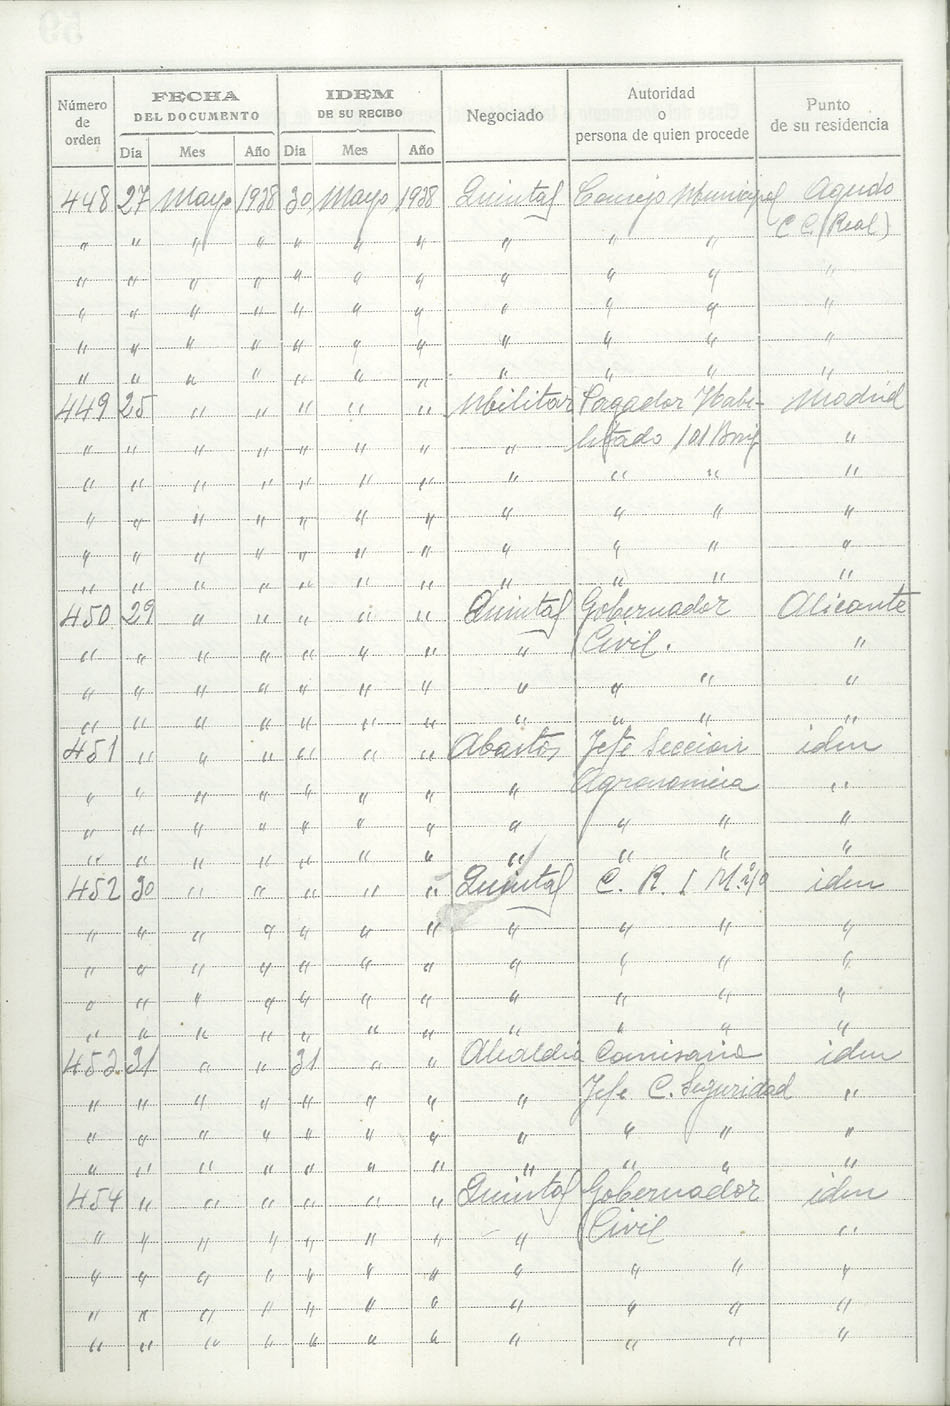 Número de orden | FECHA DEL DOCUMENTO | IDEM DE SU RECIBO | Negociado | Autoridad o persona de quien procede | Punto de su residencia
Día | Mes | Año | Día | Mes | Año
448 27 Mayo 1938 30 Mayo 1938 Quintas Consejo Municipal Agudo
" " " " " " " " " " C. (Real)
" " " " " " " " " " "
" " " " " " " " " " "
" " " " " " " " " " "
" " " " " " " " " " "
449 25 " " " " " Militar Pagador Habi- Madrid
" " " " " " " " litado 101 Brig "
" " " " " " " " " " "
" " " " " " " " " " "
" " " " " " " " " " "
" " " " " " " " " " "
450 29 " " " " " Quintas Gobernador Alicante
" " " " " " " " Civil. "
" " " " " " " " " " "
" " " " " " " " " " "
451 " " " " " " Abastos Jefe Seccion idem
" " " " " " " " Agronomica "
" " " " " " " " " " "
" " " " " " " " " " "
452 30 " " " " " Quintas C. R. I. idem
" " " " " " " " " " "
" " " " " " " " " " "
" " " " " " " " " " "
" " " " " " " " " " "
453 31 " " 31 " " Alcaldia Comisaria idem
" " " " " " " " Jefe C. Seguridad "
" " " " " " " " " " "
" " " " " " " " " " "
454 " " " " " " Quintas Gobernador idem
" " " " " " " " Civil "
" " " " " " " " " " "
" " " " " " " " " " "
" " " " " " " " " " "